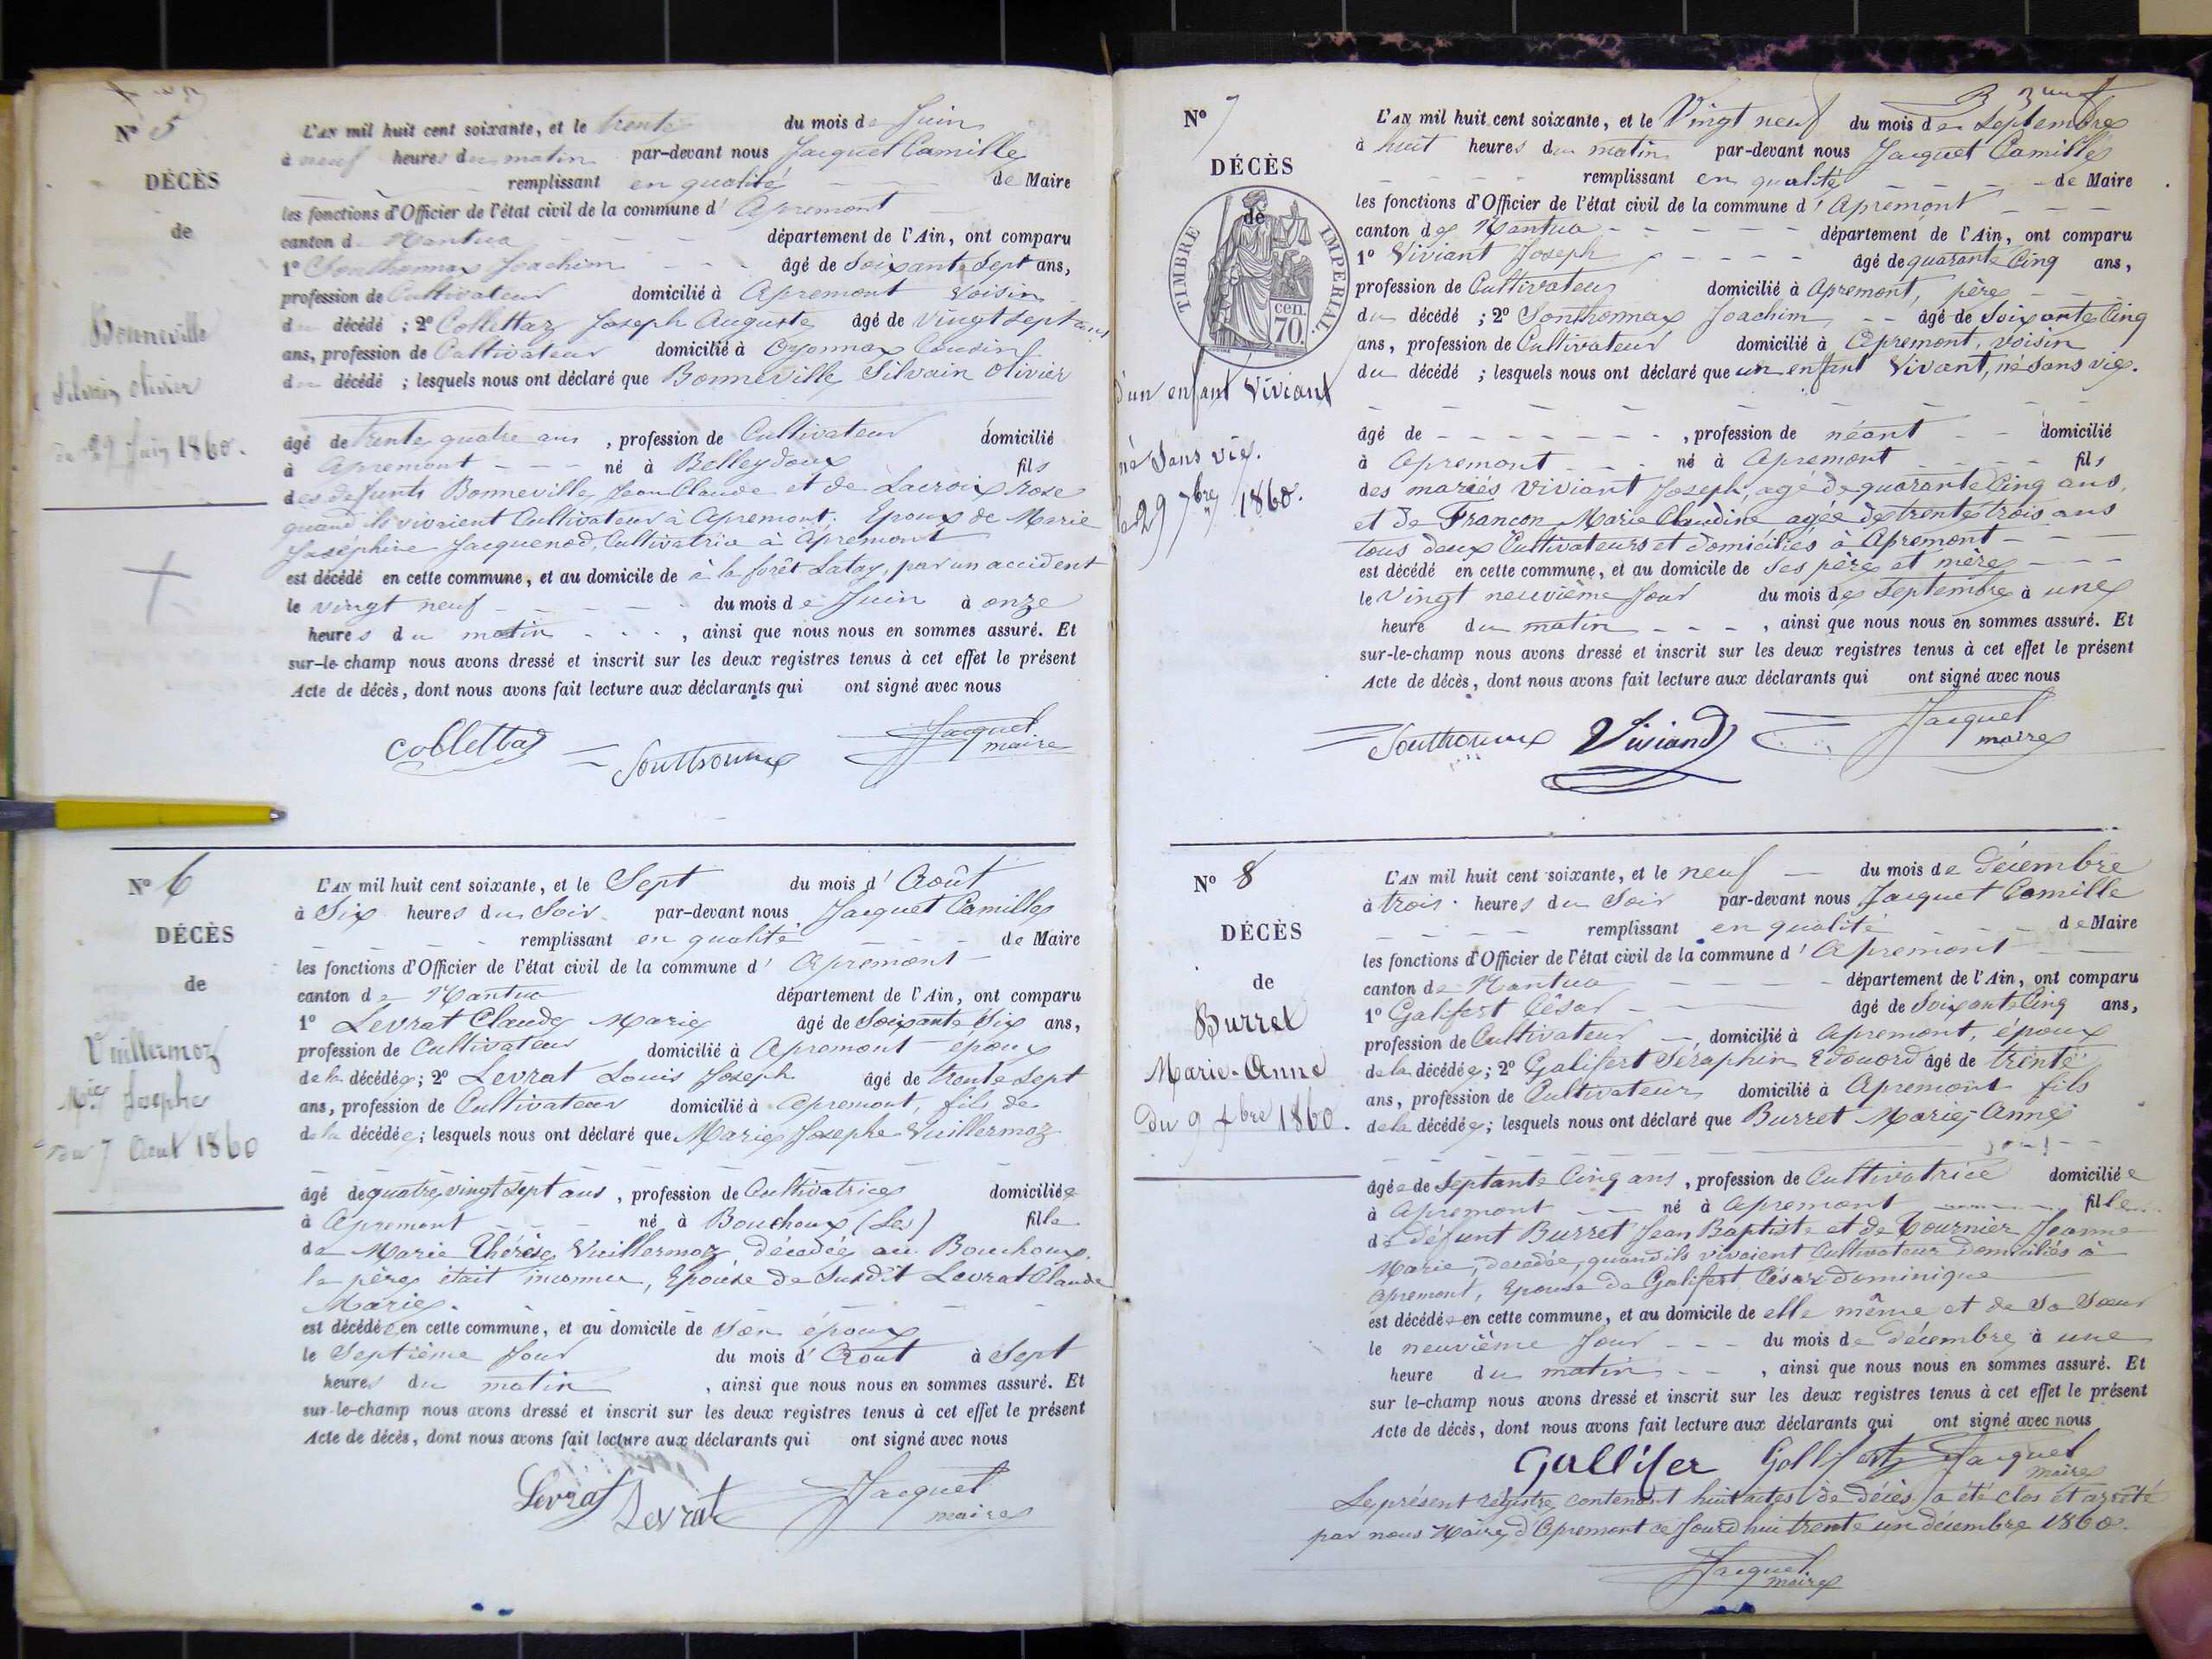 N° 5
DÉCÈS
de
Bonneville
Silvain Olivier
du 29 Juin 1860.
L'AN mil huit cent soixante, et le trente du mois de Juin
à neuf heures du matin par-devant nous Jacquet Camille
remplissant en qualité de Maire
les fonctions d'Officier de l'état civil de la commune d' Apremont
canton de Nantua département de l'Ain, ont comparu
1° Sonthonnax Joachim âgé de Soixante Sept ans,
profession de Cultivateur domicilié à Apremont Voisin
du décédé ; 2° Collettaz Joseph Auguste âgé de Vingt Sept ans
ans, profession de Cultivateur domicilié à Oyonnax Cousin
du décédé ; lesquels nous ont déclaré que Bonneville Silvain Olivier
âgé de trente quatre ans , profession de Cultivateur domicilié
à Apremont né à Belleydoux fils
des defunts Bonneville Jean Claude et de Lacroix Rose
quand ils vivaient Cultivateur à Apremont, Epoux de Marie
Joséphine Jacquenod, Cultivatrice à Apremont
est décédé en cette commune, et au domicile de à la forêt Latay, par un accident
le vingt neuf du mois de Juin à onze
heures du matin , ainsi que nous nous en sommes assuré. Et
sur-le-champ nous avons dressé et inscrit sur les deux registres tenus à cet effet le présent
Acte de décès, dont nous avons fait lecture aux déclarants qui ont signé avec nous
Collettaz Sonthonnax Jacquet
maire
N° 6
DÉCÈS
de
Vuillermoz
Mie Josephe
du 7 Aout 1860
L'AN mil huit cent soixante, et le Sept du mois d' Août
à Six heures du Soir par-devant nous Jacquet Camille
remplissant en qualité de Maire
les fonctions d'Officier de l'état civil de la commune d' Apremont
canton de Nantua département de l'Ain, ont comparu
1° Levrat Claude Marie âgé de Soixante Six ans,
profession de Cultivateur domicilié à Apremont époux
de la décédée ; 2° Levrat Louis Joseph âgé de trente Sept
ans, profession de Cultivateur domicilié à Apremont, fils de
de la décédée ; lesquels nous ont déclaré que Marie Josephe Vuillermoz
âgé de quatre vingt Sept ans , profession de Cultivatrice domiciliée
à Apremont né à Bouchoux (Les) fille
de Marie Thérèse Vuillermoz décédée au Bouchoux
le père était inconnu, Epouse de Susdit Levrat Claude
Marie.
est décédée en cette commune, et au domicile de son époux
le Septième Jour du mois d' Aout à Sept
heures du matin , ainsi que nous nous en sommes assuré. Et
sur-le-champ nous avons dressé et inscrit sur les deux registres tenus à cet effet le présent
Acte de décès, dont nous avons fait lecture aux déclarants qui ont signé avec nous
Levrat Levrat Jacquet
maire
N° 7
DÉCÈS
de
TIMBRE IMPÉRIAL.
70 cen.
d'un enfant Viviant
né Sans vie.
le 29 7bre 1860.
L'AN mil huit cent soixante, et le Vingt neuf du mois de Septembre
à huit heures du matin par-devant nous Jacquet Camille
remplissant en qualité de Maire
les fonctions d'Officier de l'état civil de la commune d' Apremont
canton de Nantua département de l'Ain, ont comparu
1° Viviant Joseph âgé de quarante Cinq ans,
profession de Cultivateur domicilié à Apremont, père
du décédé ; 2° Sonthonnax Joachim âgé de Soixante Cinq
ans, profession de Cultivateur domicilié à Apremont, voisin
du décédé ; lesquels nous ont déclaré que un enfant Vivant, né sans vie.
âgé de , profession de néant domicilié
à Apremont né à Apremont fils
des mariés Viviant Joseph, agé de quarante Cinq ans,
et de Francon Marie Claudine agée de trente trois ans
tous deux Cultivateurs et domiciliés à Apremont
est décédé en cette commune, et au domicile de ses père et mère
le Vingt neuvième Jour du mois de Septembre à une
heure du matin , ainsi que nous nous en sommes assuré. Et
sur-le-champ nous avons dressé et inscrit sur les deux registres tenus à cet effet le présent
Acte de décès, dont nous avons fait lecture aux déclarants qui ont signé avec nous
Sonthonnax Viviand Jacquet
maire
N° 8
DÉCÈS
de
Burret
Marie-Anne
Du 9 Xbre 1860.
L'AN mil huit cent soixante, et le neuf du mois de Décembre
à trois heures du Soir par-devant nous Jacquet Camille
remplissant en qualité de Maire
les fonctions d'Officier de l'état civil de la commune d' Apremont
canton de Nantua département de l'Ain, ont comparu
1° Galifert César âgé de Soixante Cinq ans,
profession de Cultivateur domicilié à Apremont, époux
de la décédée ; 2° Galifert Séraphin Edouard âgé de trente
ans, profession de Cultivateur domicilié à Apremont fils
de la décédée ; lesquels nous ont déclaré que Burret Marie-Anne
âgée de Septante Cinq ans , profession de Cultivatrice domiciliée
à Apremont né à Apremont fille
de défunt Burret Jean Baptiste et de Tournier Jeanne
Marie, decedée, quand ils vivaient Cultivateur domiciliés à
Apremont, Epouse de Galifert César dominique
est décédée en cette commune, et au domicile de elle même et de Sa Sœur
le neuvième Jour du mois de Décembre à une
heure du matin , ainsi que nous nous en sommes assuré. Et
sur le-champ nous avons dressé et inscrit sur les deux registres tenus à cet effet le présent
Acte de décès, dont nous avons fait lecture aux déclarants qui ont signé avec nous
Gallifer Gallifert Jacquet
maire
Le présent régistre contenant huit actes de décès a été clos et arrêté
par nous Maire d'Apremont ce Jourd'hui trente un décembre 1860.
Jacquet
maire